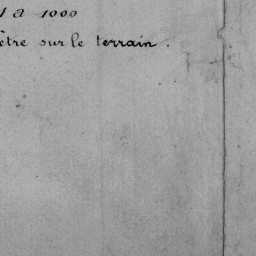 1 a 1000
être sur le terrain.